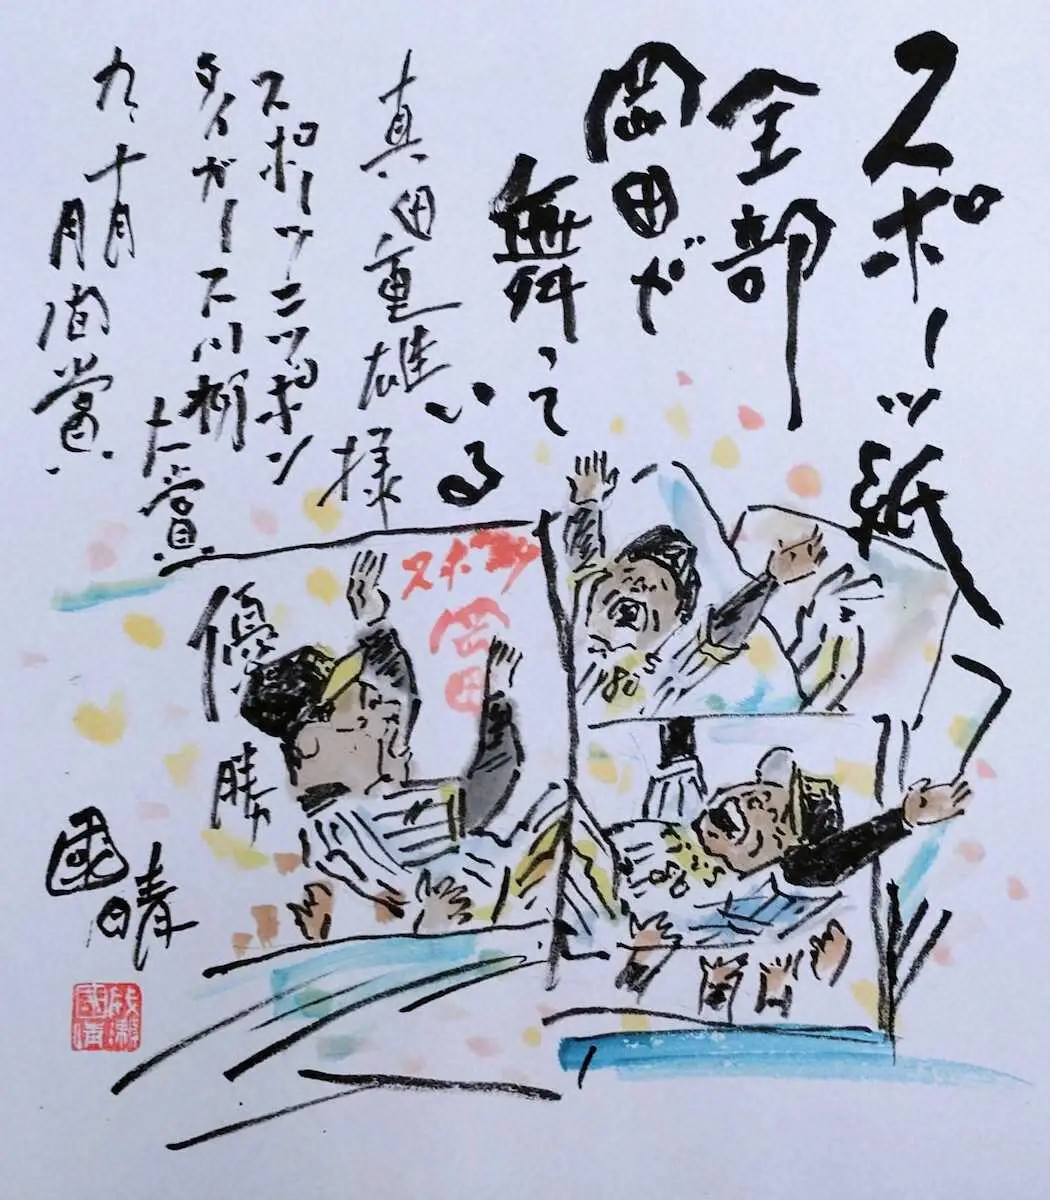 スポーツ紙
全部
岡田が
舞って
いる
真田重雄様
スポーツニッポン
タイガース川柳
大賞
九、十月
月間賞
優勝
スポニチ
岡田
80
80
國晴